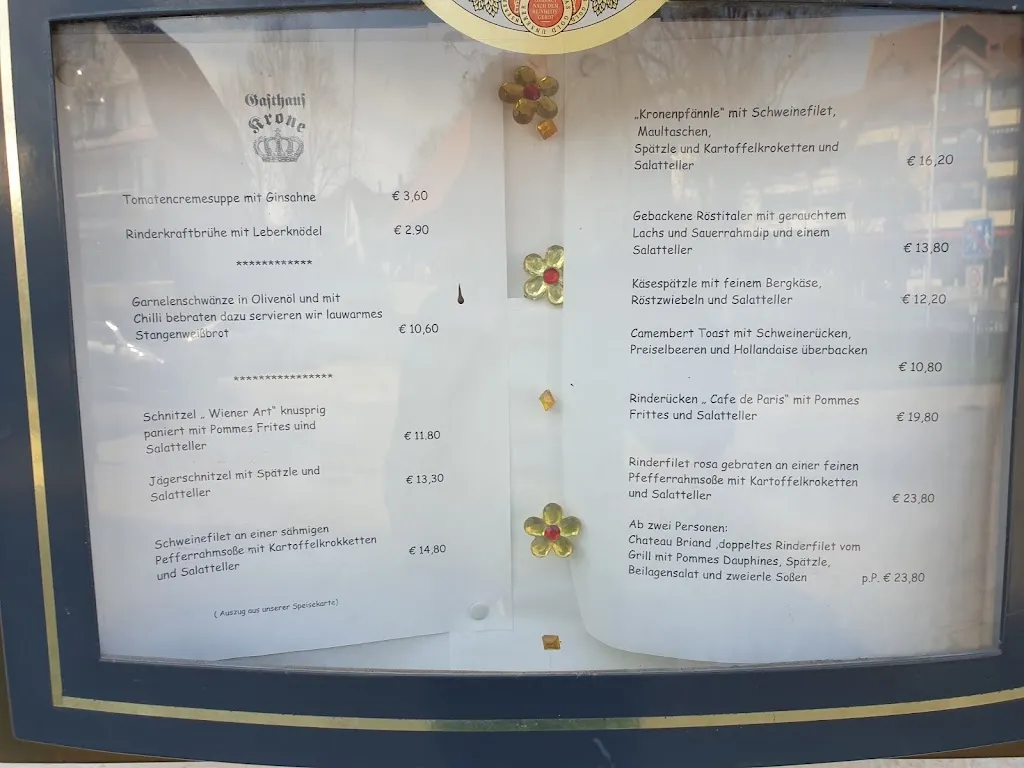 Gasthaus
Krone
Tomatencremesuppe mit Ginsahne € 3,60
Rinderkraftbrühe mit Leberknödel € 2.90
************
Garnelenschwänze in Olivenöl und mit
Chilli bebraten dazu servieren wir lauwarmes
Stangenweißbrot € 10,60
****************
Schnitzel „ Wiener Art" knusprig
paniert mit Pommes Frites uind
Salatteller € 11,80
Jägerschnitzel mit Spätzle und
Salatteller € 13,30
Schweinefilet an einer sähmigen
Pefferrahmsoße mit Kartoffelkrokketten
und Salatteller € 14,80
( Auszug aus unserer Speisekarte)
„Kronenpfännle" mit Schweinefilet,
Maultaschen,
Spätzle und Kartoffelkroketten und
Salatteller € 16,20
Gebackene Röstitaler mit gerauchtem
Lachs und Sauerrahmdip und einem
Salatteller € 13,80
Käsespätzle mit feinem Bergkäse,
Röstzwiebeln und Salatteller € 12,20
Camembert Toast mit Schweinerücken,
Preiselbeeren und Hollandaise überbacken
€ 10,80
Rinderücken „ Cafe de Paris" mit Pommes
Frittes und Salatteller € 19,80
Rinderfilet rosa gebraten an einer feinen
Pfefferrahmsoße mit Kartoffelkroketten
und Salatteller € 23,80
Ab zwei Personen:
Chateau Briand ,doppeltes Rinderfilet vom
Grill mit Pommes Dauphines, Spätzle,
Beilagensalat und zweierle Soßen p.P. € 23,80